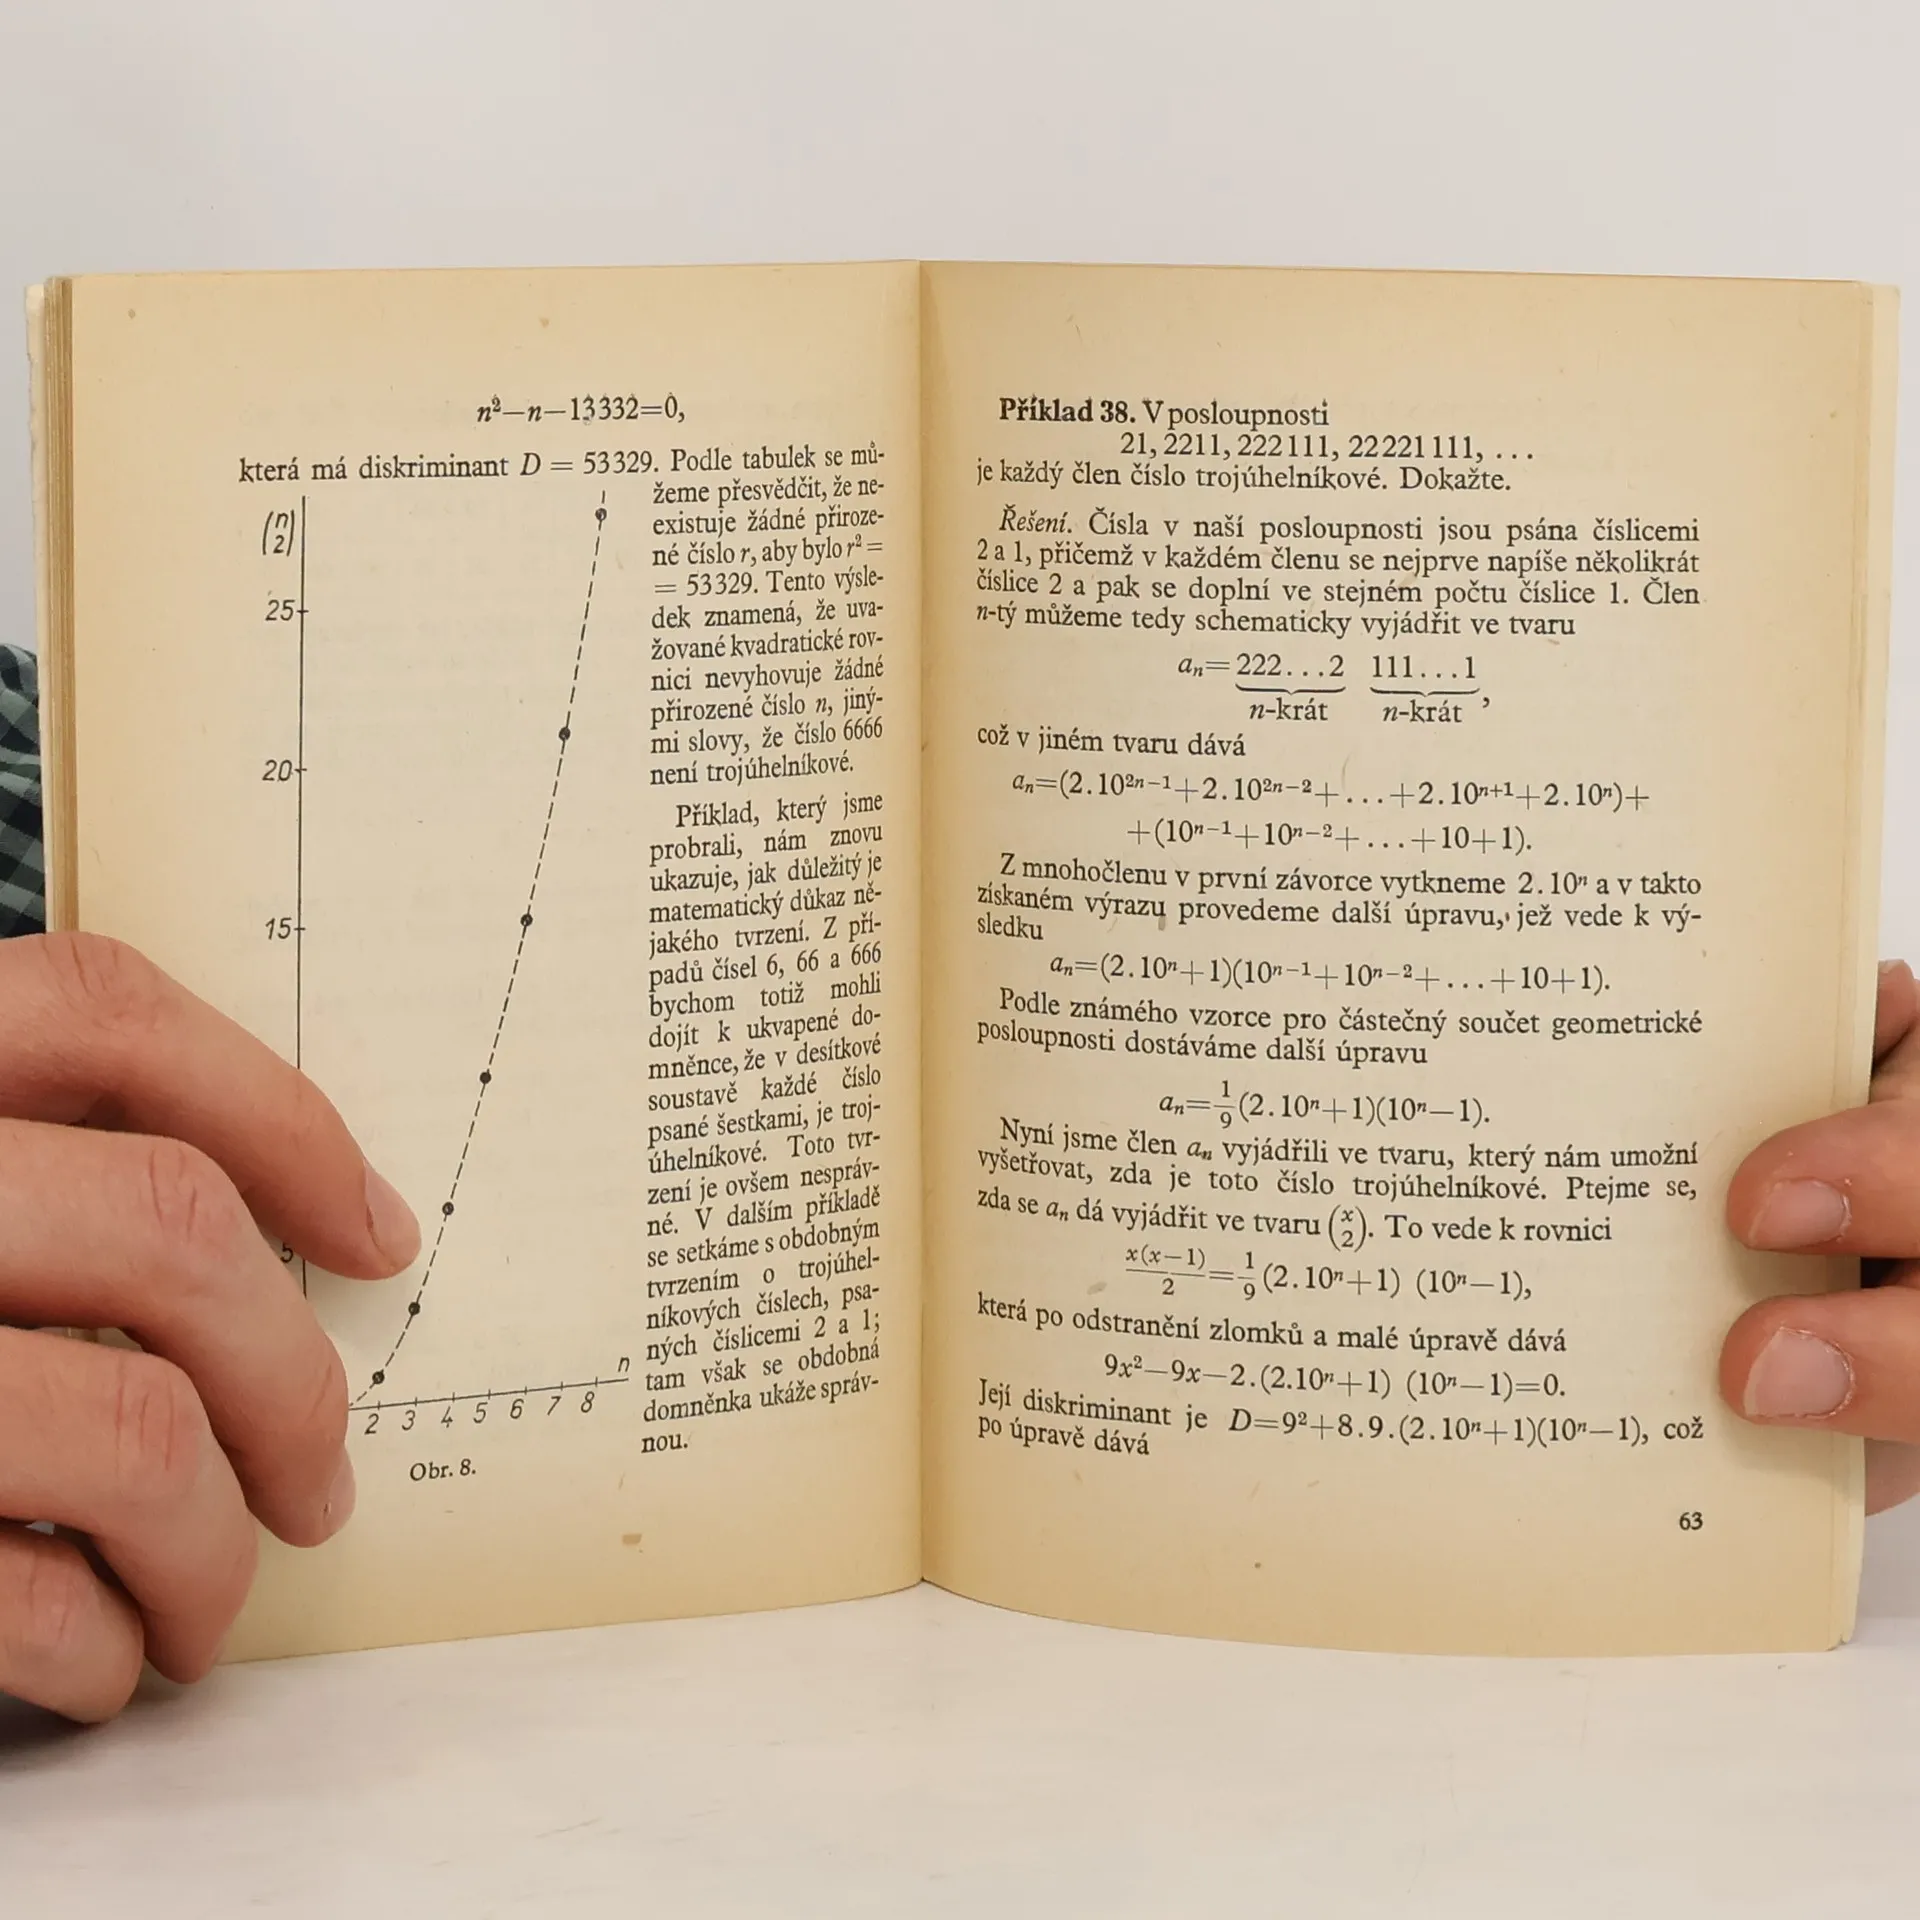 n²—n—13332=0,
která má diskriminant D = 53329. Podle tabulek se mů-
žeme přesvědčit, že ne-
existuje žádné přiroze-
né číslo r, aby bylo r² =
= 53329. Tento výsle-
dek znamená, že uva-
žované kvadratické rov-
nici nevyhovuje žádné
přirozené číslo n, jiný-
mi slovy, že číslo 6666
není trojúhelníkové.
Příklad, který jsme
probrali, nám znovu
ukazuje, jak důležitý je
matematický důkaz ně-
jakého tvrzení. Z pří-
padů čísel 6, 66 a 666
bychom totiž mohli
dojít k ukvapené do-
mněnce, že v desítkové
soustavě každé číslo
psané šestkami, je troj-
úhelníkové. Toto tvr-
zení je ovšem nespráv-
né. V dalším příkladě
se setkáme s obdobným
tvrzením o trojúhel-
níkových číslech, psa-
ných číslicemi 2 a 1;
tam však se obdobná
domněnka ukáže správ-
nou.
(n 2)
25
20
15
5
n
2 3 4 5 6 7 8
Obr. 8.
Příklad 38. V posloupnosti
21, 2211, 222111, 22221111, ...
je každý člen číslo trojúhelníkové. Dokažte.
Řešení. Čísla v naší posloupnosti jsou psána číslicemi
2 a 1, přičemž v každém členu se nejprve napíše několikrát
číslice 2 a pak se doplní ve stejném počtu číslice 1. Člen
n-tý můžeme tedy schematicky vyjádřit ve tvaru
aₙ= 222...2 111...1
n-krát n-krát ,
což v jiném tvaru dává
aₙ=(2.10²ⁿ⁻¹+2.10²ⁿ⁻²+...+2.10ⁿ⁺¹+2.10ⁿ)+
+(10ⁿ⁻¹+10ⁿ⁻²+...+10+1).
Z mnohočlenu v první závorce vytkneme 2.10ⁿ a v takto
získaném výrazu provedeme další úpravu, jež vede k vý-
sledku
aₙ=(2.10ⁿ+1)(10ⁿ⁻¹+10ⁿ⁻²+...+10+1).
Podle známého vzorce pro částečný součet geometrické
posloupnosti dostáváme další úpravu
aₙ=1/9(2.10ⁿ+1)(10ⁿ—1).
Nyní jsme člen aₙ vyjádřili ve tvaru, který nám umožní
vyšetřovat, zda je toto číslo trojúhelníkové. Ptejme se,
zda se aₙ dá vyjádřit ve tvaru (x 2). To vede k rovnici
x(x—1)/2=1/9(2.10ⁿ+1) (10ⁿ—1),
která po odstranění zlomků a malé úpravě dává
9x²—9x—2.(2.10ⁿ+1) (10ⁿ—1)=0.
Její diskriminant je D=9²+8.9.(2.10ⁿ+1)(10ⁿ—1), což
po úpravě dává
63